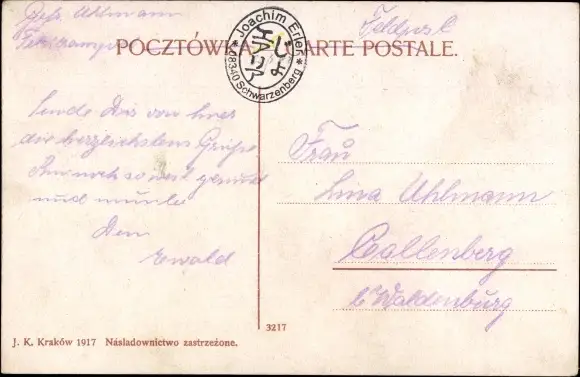 Gefr. Uhlmann
Feldpost
POCZTÓWKA CARTE POSTALE.
* Joachim Erler *
08340 Schwarzenberg
Sende Dir von hier
die herzlichsten Grüße
bin noch so weit gesund
und munter
Dein
Ewald
Frau
Lina Uhlmann
Callenberg
b. Waldenburg
3217
J. K. Kraków 1917 Násladownictwo zastrzeżone.